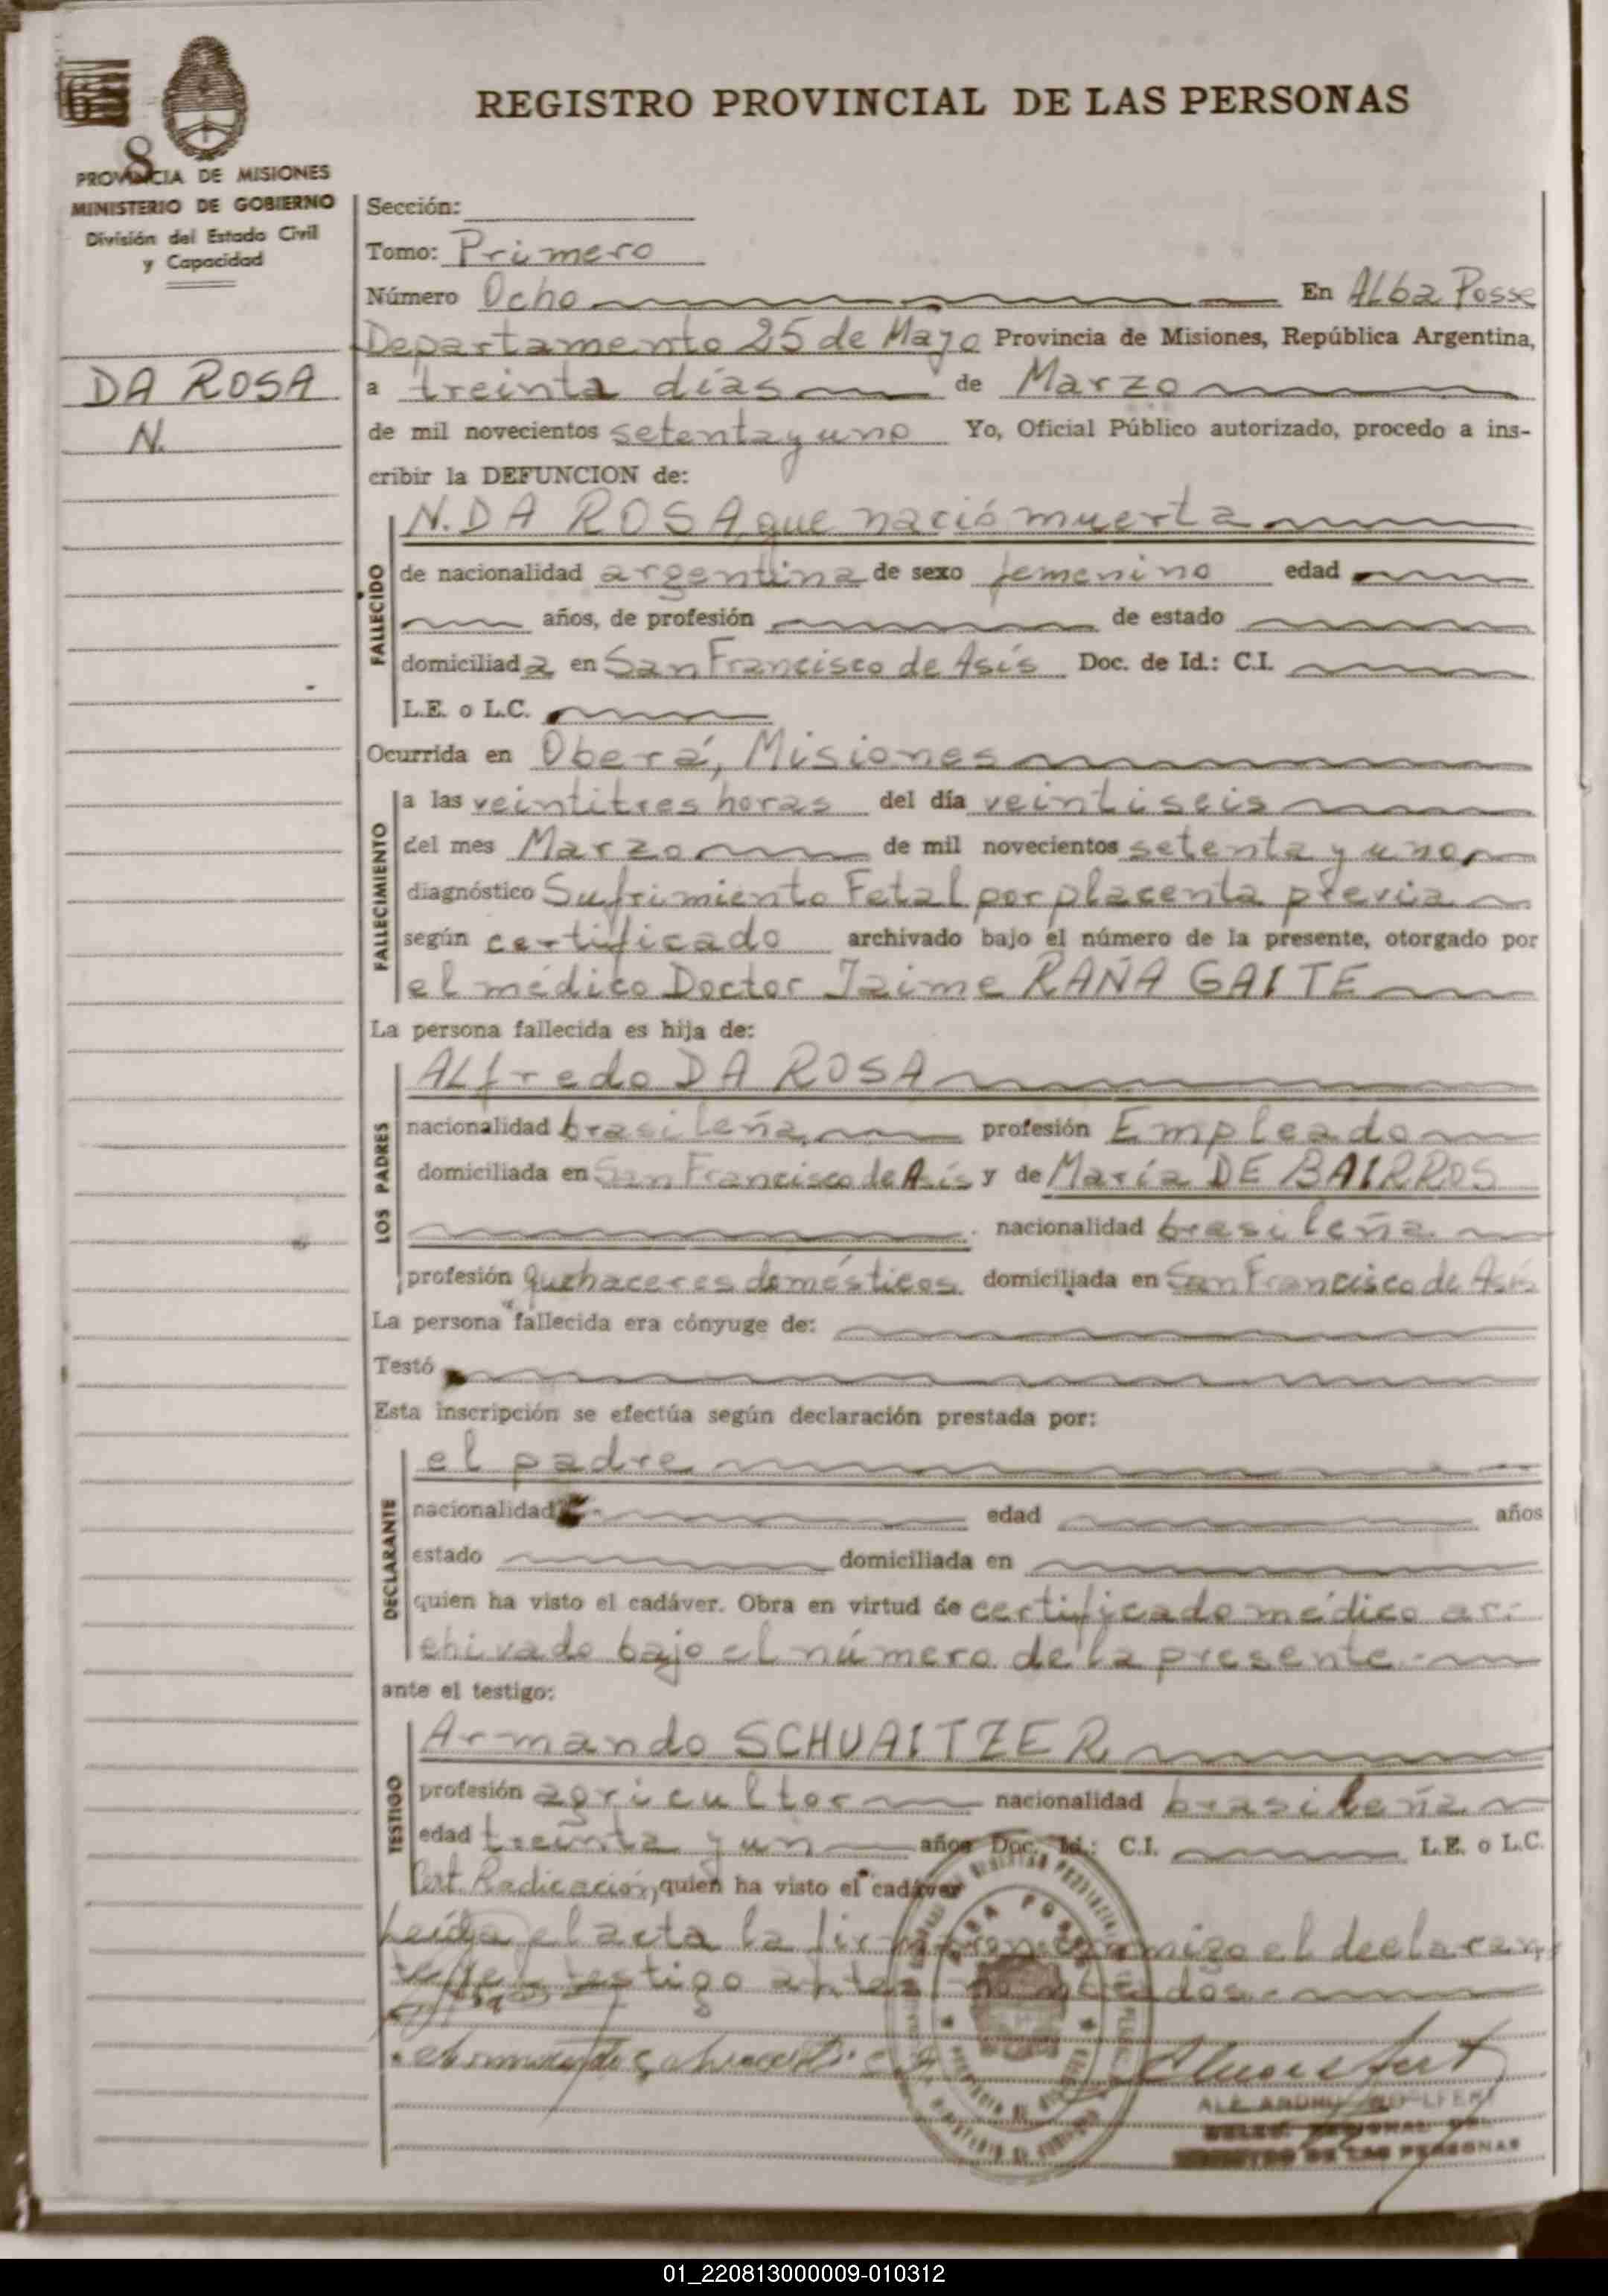 REGISTRO PROVINCIAL DE LAS PERSONAS
8
PROVINCIA DE MISIONES
MINISTERIO DE GOBIERNO
División del Estado Civil
y Capacidad
DA ROSA
N.
Sección:
Tomo: Primero
Número Ocho En Alba Posse
Departamento 25 de Mayo Provincia de Misiones, República Argentina,
a treinta días de Marzo
de mil novecientos setenta y uno Yo, Oficial Público autorizado, procedo a ins-
cribir la DEFUNCION de:
N. DA ROSA, que nació muerta
FALLECIDO
de nacionalidad argentina de sexo femenino edad
años, de profesión de estado
domiciliada en San Francisco de Asís Doc. de Id.: C.I.
L.E. o L.C.
Ocurrida en Oberá, Misiones
FALLECIMIENTO
a las veintitres horas del día veintiseis
del mes Marzo de mil novecientos setenta y uno,
diagnóstico Sufrimiento Fetal por placenta previa
según certificado archivado bajo el número de la presente, otorgado por
el médico Doctor Jaime RAÑA GAITE
La persona fallecida es hija de:
LOS PADRES
Alfredo DA ROSA
nacionalidad brasileña profesión Empleado
domiciliada en San Francisco de Asís y de María DE BAIRROS
nacionalidad brasileña
profesión Quehaceres domésticos domiciliada en San Francisco de Asís
La persona fallecida era cónyuge de:
Testó
Esta inscripción se efectúa según declaración prestada por:
DECLARANTE
el padre
nacionalidad edad años
estado domiciliada en
quien ha visto el cadáver. Obra en virtud de certificado médico ar-
chivado bajo el número de la presente.
ante el testigo:
TESTIGO
Armando SCHUAITZER
profesión agricultor nacionalidad brasileña
edad treinta y un años Doc. Id.: C.I. L.E. o L.C.
Cert. Radicación, quien ha visto el cadáver
Leída el acta la firmaron conmigo el declaran
te y el testigo antes nombrados.
REGIONAL
DE LAS PERSONAS
01_220813000009-010312